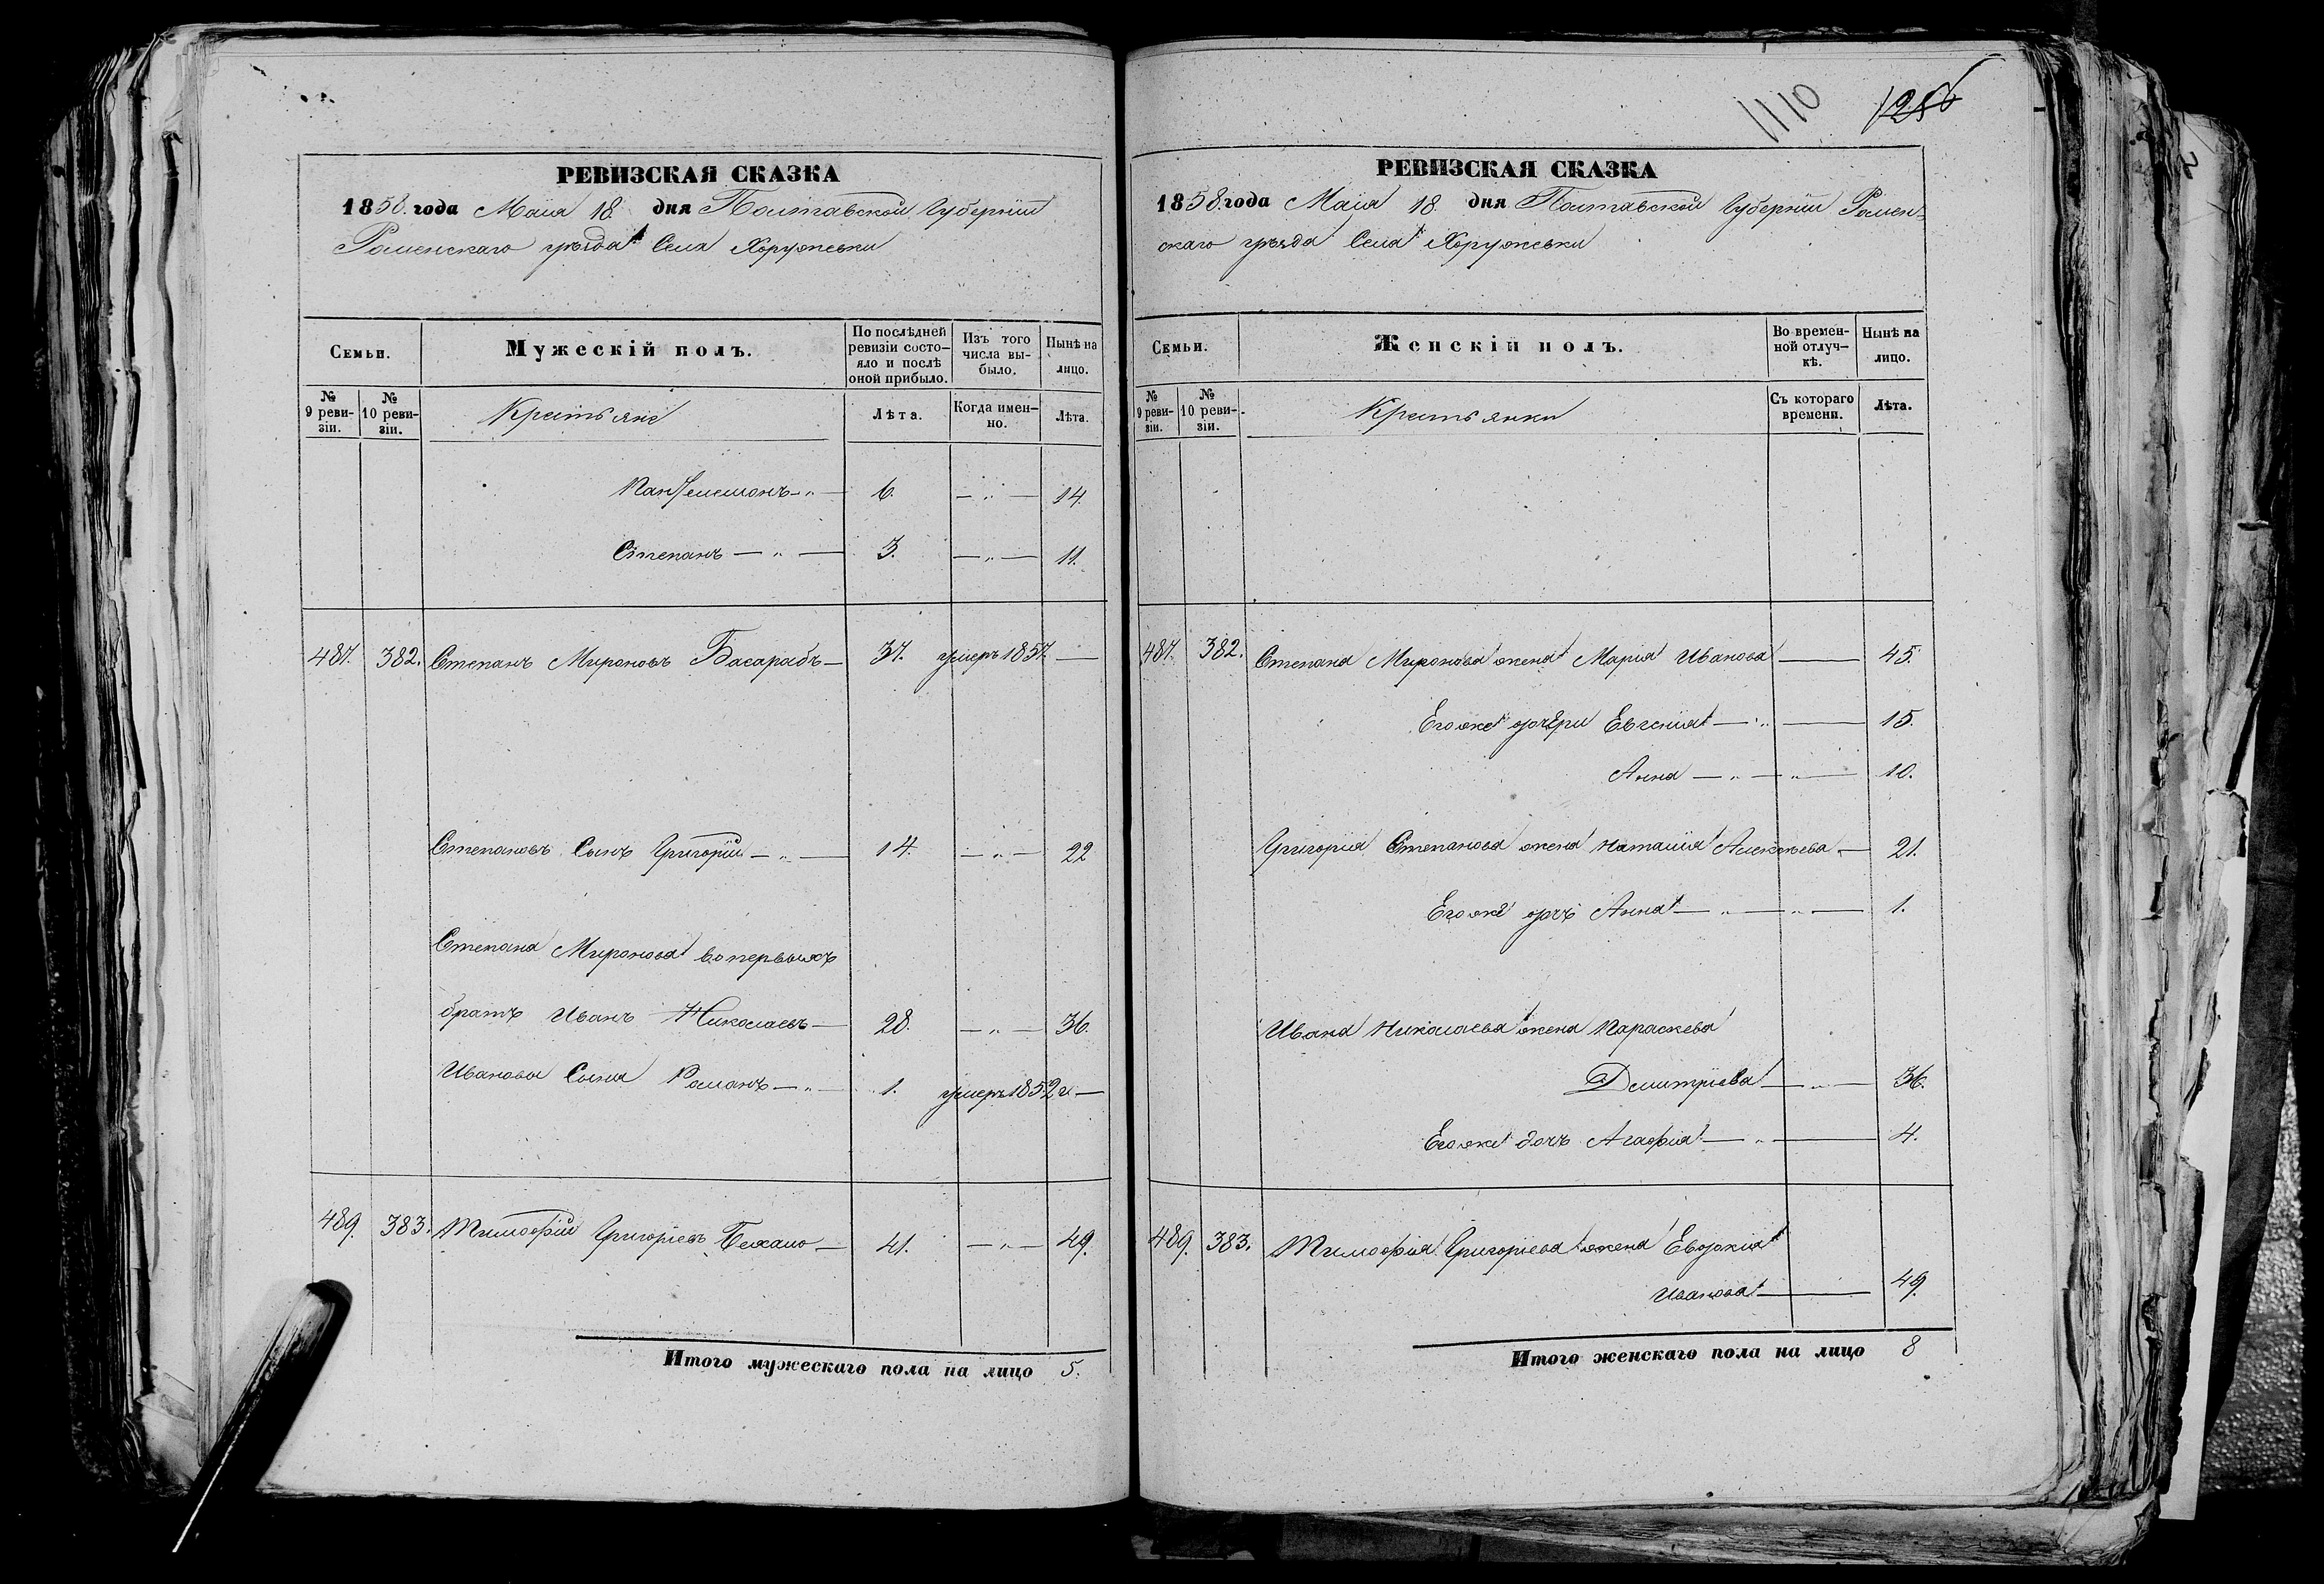 1110
РЕВИЗСКАЯ СКАЗКА
1858. года Маія 18. дня Полтавской Губерніи
Роменскаго уѣзда Села Хоружевки
Семьи.
Мужескій полъ.
По послѣдней ревизіи состо-яло и послѣ оной прибыло.
Изъ того числа вы-было.
Нынѣ на лицо.
№ 9 реви-зіи.
№ 10 реви-зіи.
Крестьяне
Лѣта.
Когда имен-но.
Лѣта.
Пантелемонъ — „ — 6. — „ — 14.
Степанъ — „ — 3. — „ — 11.
487. 382. Степанъ Мироновъ Басарабъ — 37. умеръ 1857. —
Степановъ Сынъ Григорій — „ — 14. — „ — 22
Степана Миронова вопервыхъ
братъ Иванъ Николаевъ — 28. — „ — 36.
Иванова Сына Романъ — „ — 1. умеръ 1852 г. —
489. 383. Тимофій Григоріевъ — 41. — „ — 49.
Итого мужескаго пола на лицо 5.
РЕВИЗСКАЯ СКАЗКА
1858. года Маія 18. дня Полтавской Губерніи Ромен-
скаго уѣзда Села Хоружевки
Семьи.
Женскій полъ.
Во времен-ной отлуч-кѣ.
Нынѣ на лицо.
№ 9 реви-зіи.
№ 10 реви-зіи.
Крестьянки
Съ котораго времени.
Лѣта.
487. 382. Степана Миронова жена Марія Иванова — 45.
Егоже дочери Евгенія — „ — 15.
Анна — „ — „ — 10.
Григорія Степанова жена Наталія Алексѣева — 21.
Егоже дочъ Анна — „ — „ — 1.
Ивана Николаева жена Параскева
Дмитріева — „ — 36.
Егоже дочъ Агафія — „ — 4.
489. 383. Тимофія Григоріева жена Евдокія
Иванова — 49.
Итого женскаго пола на лицо 8